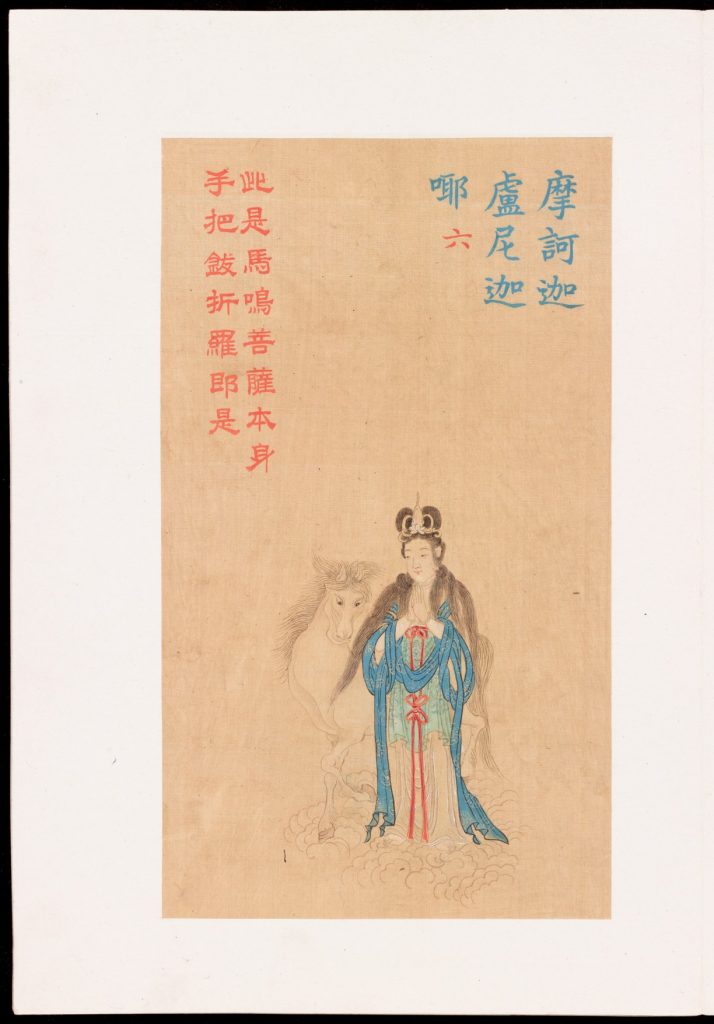 摩訶迦
盧尼迦
唧六
此是馬鳴菩薩本身
手把鈸折羅即是